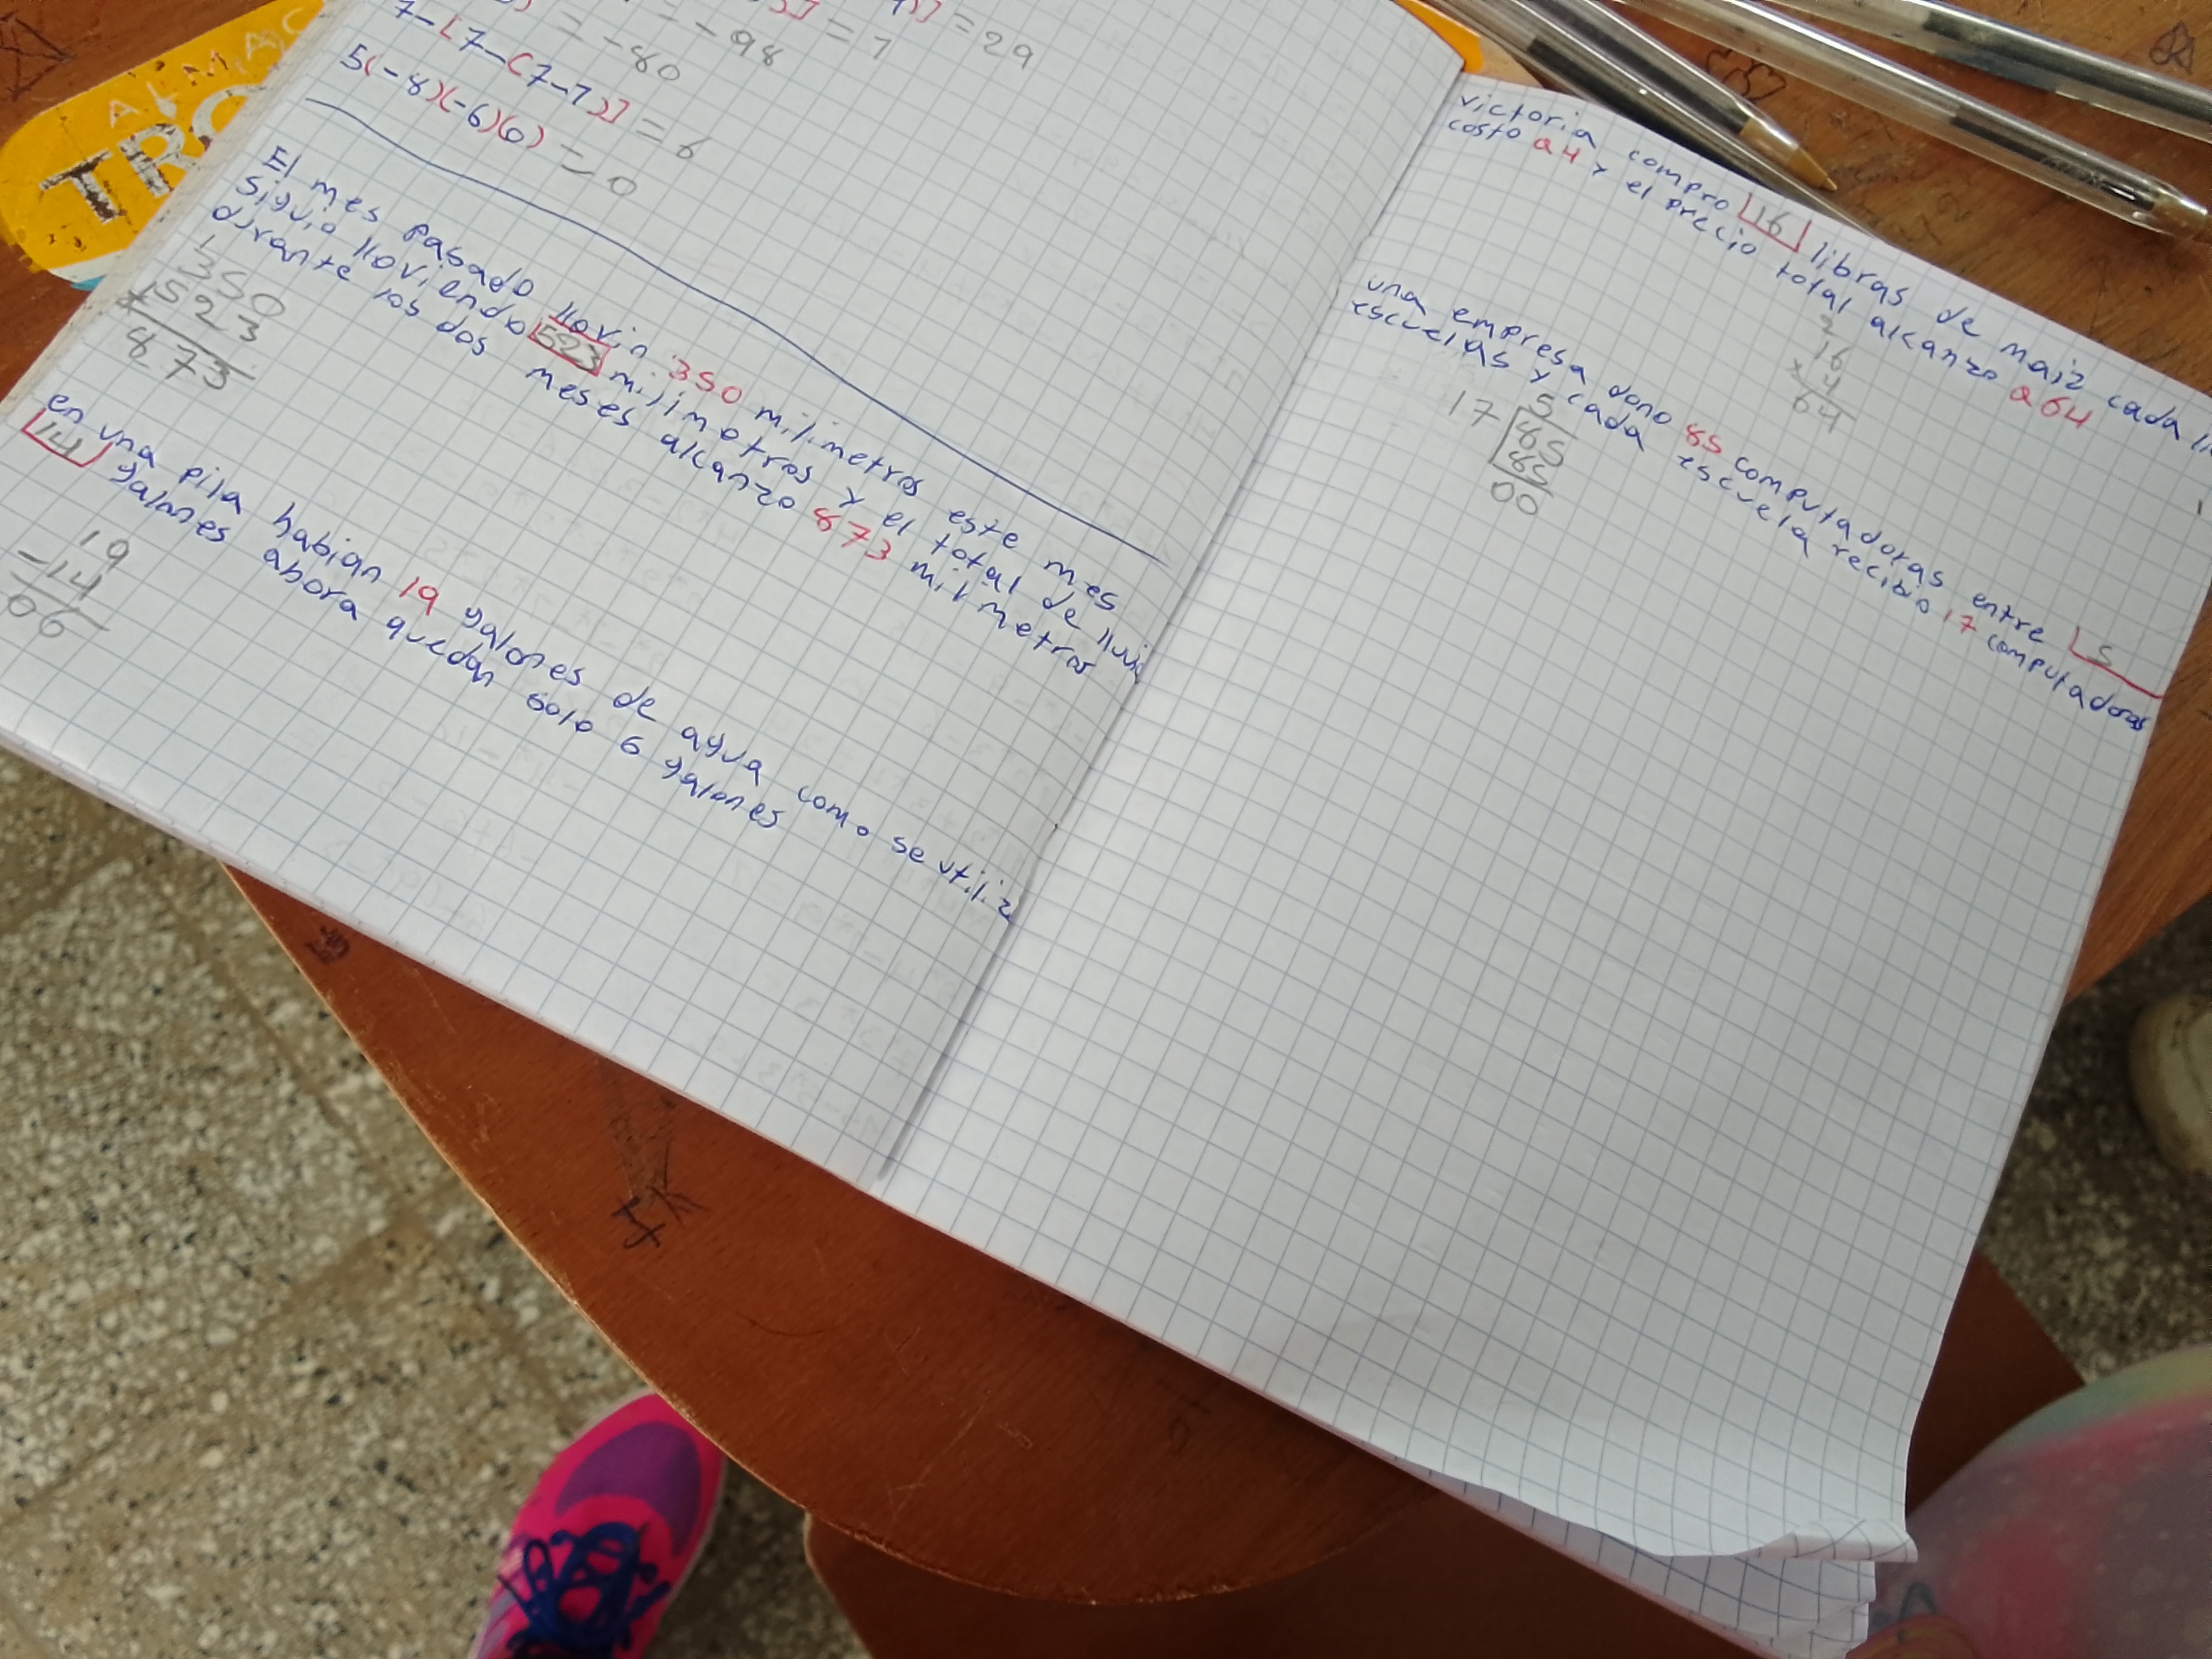 ALMAC
TRO
= -80
= -98
= 7
= 29
7-[7-(7-7)] = 6
5(-8)(-6)(0) = 0
El mes pasado llovin 350 milimetros este mes
Siguio lloviendo 523 milimetros y el total de lluvia
durante los dos meses alcanzo 873 milimetros
1
350
+523
873
en una pila habian 19 galones de agua como se utiliz
14 galones ahora quedan solo 6 galones
19
-14
06
victoria compro 16 libras de maiz cada
costo a4 y el precio total alcanzo a64
2
16
x4
64
una empresa dono 85 computadoras entre 5
escuelas y cada escuela recibio 17 computadoras
5
17 85
85
00